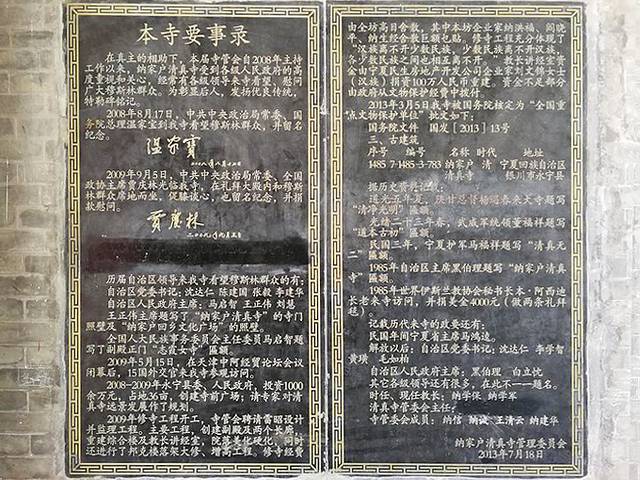 本寺要事录
在真主的相助下，本届寺管会自2008年主持
工作以来，纳家户清真寺受到各级人民政府的高
度重视和关心，经常有各级领导来寺看望、慰问
广大穆斯林群众。为彰显后人，发扬优良传统，
特勒碑铭记。
2008年8月17日，中共中央政治局常委、国
务院总理温家宝到我寺看望穆斯林群众，并留名
纪念。
温家宝
二〇〇八年八月十七日
2009年9月5日，中共中央政治局常委、全国
政协主席贾庆林光临我寺，在礼拜大殿内和穆斯
林群众席地而坐，促膝谈心，也留名纪念，并捐
款慰问。
贾庆林
二〇〇九年九月五日
历届自治区领导来我寺看望穆斯林群众的有：
自治区党委书记：沈达仁 陈建国 张毅 李建华
自治区人民政府主席：马启智 王正伟 刘慧
王正伟主席题写了“纳家户清真寺”的寺门
照壁及“纳家户回乡文化广场”的照壁。
全国人大民族事务委员会主任委员马启智题
写了副殿正门“志霞大寺”匾额。
2009年5月15日，在天津中阿经贸论坛会议
闭幕后，15国外交官来我寺参观访问。
2008-2009年永宁县委、人民政府，投资1000
余万元，占地36亩，创建寺前广场；请寺家对清
真寺远景发展作了规划。
2009年修寺工程开工，寺管会聘请雷昭设计
并监理工程。主要工程，创建副殿及两个长廊，
重建综合楼及教长讲经室，院落美化硬化，同时
还进行了邦克楼落架大修、增高工程。修寺经费
由全坊高目全数，其中本坊企业家纳洪福、阎晓
苹、纳生经舍散巨额乜贴，修寺工程充分体现了
“汉族离不开少数民族，少数民族离不开汉族，
各少数民族之间也相互离不开。”教长讲经室资
金由宁夏民生房地产开发公司企业家刘文锦女士
（汉族）捐资100万人民币重建，资金不足部分
由政府从文物保护经费中核付。
2013年3月5日我寺被国务院核定为“全国重
点文物保护单位”批文如下：
国务院文件 国发［2013］13号
三、古建筑
序号 编号 名称 时代 地址
1485 7-1485-3-783 纳家户 清 宁夏回族自治区
清真寺 银川市永宁县
据历史资料记载：
道光五年夏，陕甘总督杨遇春来大寺题写
“清净光明”匾额。
光绪二十三年春，武威军统领董福祥题写
“道本古初”匾额。
民国三年，宁夏护军马福祥题写“清真无
二”匾额。
1985年自治区主席黑伯理题写“纳家户清真
寺”匾额。
1985年世界伊斯兰教协会秘书长木·阿西迪
长老来寺访问，并捐美金4000元（做两条礼拜
毯）。
记载历代来寺的政要还有：
民国年间宁夏省主席马鸿逵。
解放以后：自治区党委书记：沈达仁 李学智
黄璜 毛如柏
自治区人民政府主席：黑伯理 白立忱
其它各级领导还有很多，在此不一一题名。
时任、现任教长：纳学保 纳学军
清真寺管委会主任：
寺管委会成员：纳信 纳 王清云 纳建华
纳家户清真寺管理委员会
2013年7月18日